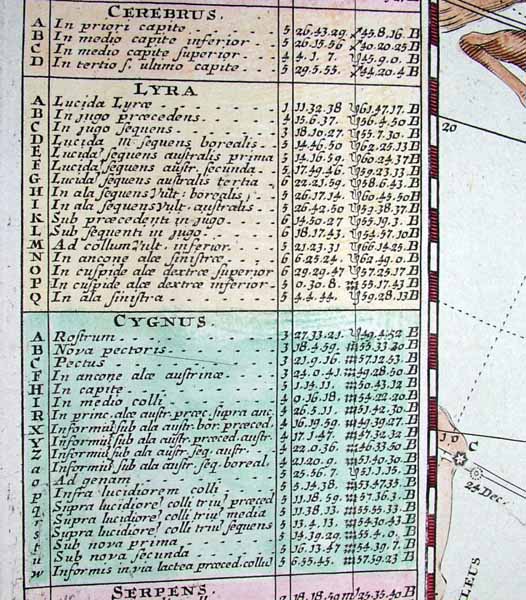 CEREBRUS.
A In priori capite 5 26.43.29. 45.8.16. B
B In medio capite inferior 5 26.15.56 40.20.25 B
C In medio capite superior 4 4.1.7. 45.9.0. B
D In tertio s. ultimo capite 5 29.5.55. 54.20.4 B
LYRA
A Lucida Lyræ 1 11.32.38 61.47.17. B
B In jugo præcedens 4 15.6.37. 56.4.50 B
C In jugo sequens 3 18.10.27. 55.7.30. B
D Lucida sequens borealis 5 14.46.50 62.25.13 B
E Lucidâ sequens australis prima 5 14.16.59. 60.24.37 B
F Lucidâ sequens austr. secunda 5 17.49.46. 59.23.13 B
G Lucidâ sequens australis tertia 6 22.21.59. 58.6.43. B
H In ala sequens Vult. borealis 5 26.17.14. 60.45.50 B
I In ala sequens Vult. australis 5 26.42.50 59.38.37 B
K Sub præcedenti in jugo 6 14.50.27 55.19.3. B
L Sub sequenti in jugo 6 18.17.43. 54.57.10 B
M Ad collum Vult. inferior 5 21.23.31 66.14.25. B
N In ancone alæ sinistræ 6 6.25.24. 62.49.0. B
O In cuspide alæ dextræ superior 6 29.29.47 57.25.17 B
P In cuspide alæ dextræ inferior 5 0.30.8. 55.17.43 B
Q In ala sinistra 5 4.4.44. 59.28.13 B
CYGNUS.
A Rostrum 3 27.33.21. 49.4.52 B
B Nova pectoris 3 18.4.50. 55.33.20 B
C Pectus 3 21.7.16. 57.12.53. B
F In ancone alæ austrinæ 3 24.0.41. 49.28.50 B
H In capite 5 1.14.11. 50.43.12 B
I In medio colli 4 0.16.18. 54.22.20 B
R In princ. alæ austr. præc. supra anc. 4 26.5.11. 51.42.30. B
X Informis sub ala austr. bor. præced. 4 16.19.59. 49.39.27. B
Y Informis sub ala austr. præced. austr. 4 17.1.47. 47.32.32 B
Z Informis sub ala austr. seq. austr. 4 22.0.36. 46.33.50 B
a Informis sub ala austr. seq. boreal. 4 21.20.9. 51.30.30 B
o Ad genam 5 3.56.7. 51.1.15. B
p Infra lucidiorem colli 5 5.14.38. 53.47.33. B
q Supra lucidiorē colli triū præced 5 11.18.59. 57.36.3. B
r Supra lucidiorē colli triū media 5 11.38.13. 55.55.33. B
s Supra lucidiorē colli triū sequens 5 13.4.13. 54.30.43 B
t Sub nova prima 5 14.39.29. 55.4.0. B
u Sub nova secunda 5 16.13.47 54.39.7. B
w Informis in via lactea præced. collū 5 6.55.45. 57.59.23 B
SERPENS.
18.18.50 25.35.40 B
20
10
C
24 Dec.
LEUS